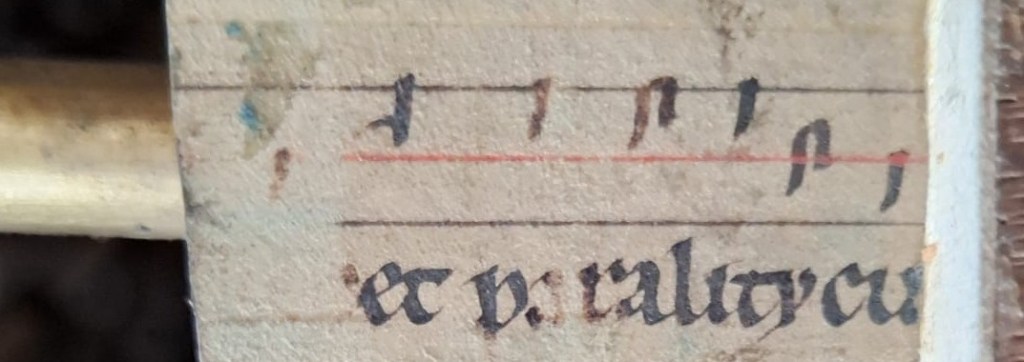 et paralitycu